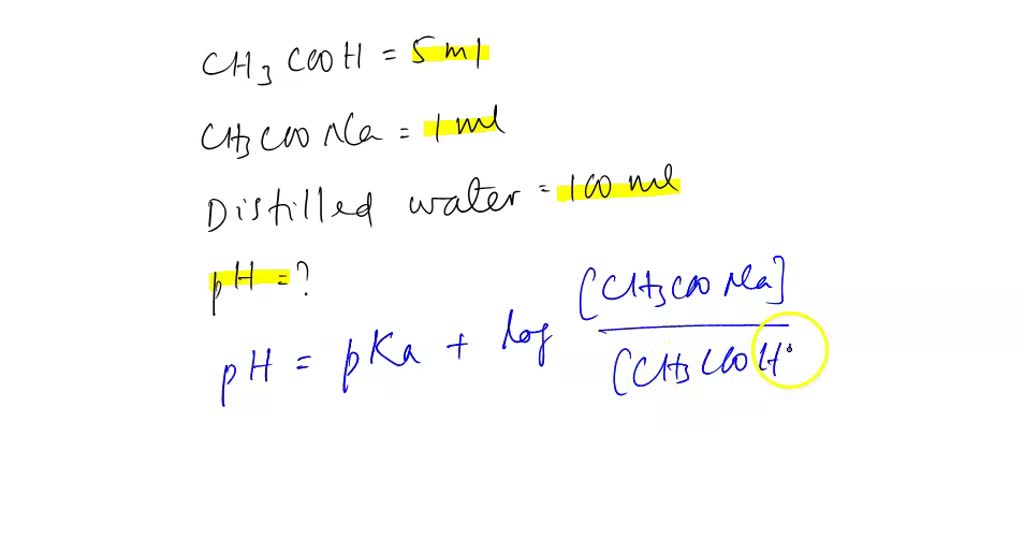 CH3COOH = 5 ml
CH3COONa = 1 ml
Distilled water = 100 ml
pH = ?
pH = pKa + log [CH3COONa]
[CH3COOH